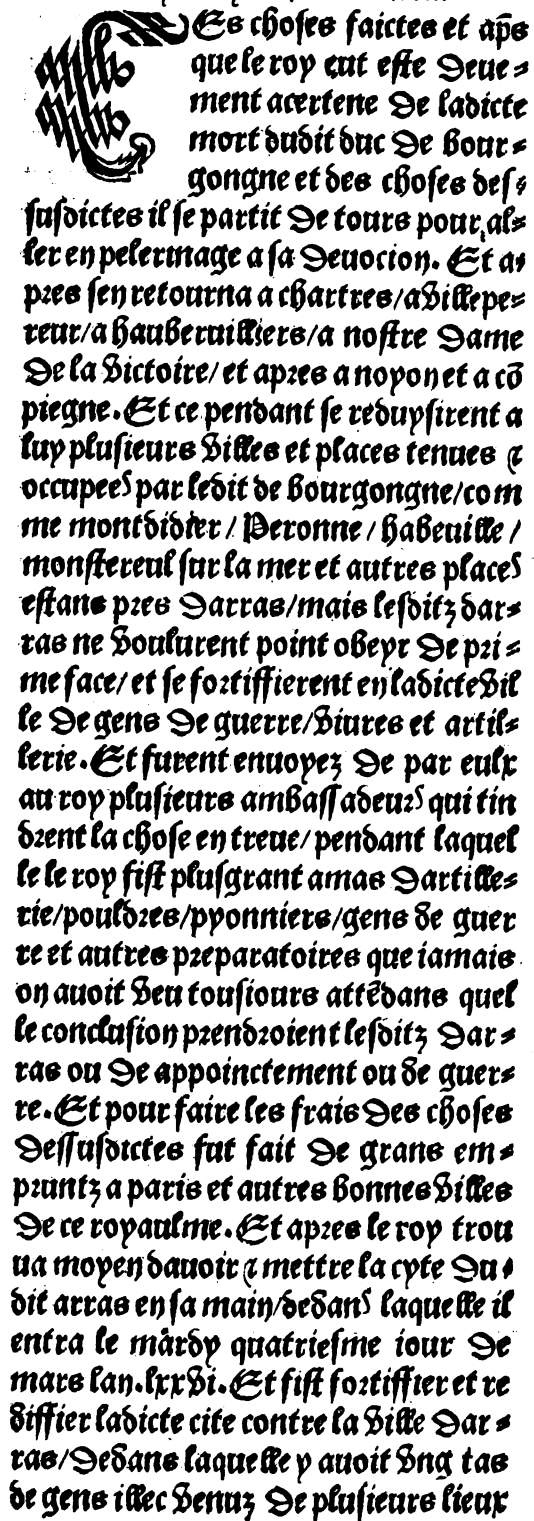 Ces choses faictes et ap̄s
que le roy eut este deue-
ment acertene de ladicte
mort dudit duc de bour-
gongne et des choses des-
susdictes il se partit de tours pour al-
ler en pelerinage a sa deuocion. Et a-
pres sen retourna a chartres/a villepe-
reur/a haubervilliers/a nostre dame
de la victoire/ et apres a noyon et a cō
piegne. Et ce pendant se reduysirent a
luy plusieurs villes et places tenues ⁊
occupees par ledit de bourgongne/com
me montdidier/ Peronne/habeuille/
monstereul sur la mer et autres places
estans pres darras/mais lesditz dar-
ras ne voulurent point obeyr de pri-
me face/ et se fortiffierent en ladicte vil
le de gens de guerre/viures et artil-
lerie. Et furent enuoyez de par eulx
au roy plusieurs ambassadeurs qui tin
drent la chose en treue/ pendant laquel
le le roy fist plusgrant amas dartille-
rie/pouldres/pyonniers/gens de guer
re et autres preparatoires que iamais
on auoit veu tousiours attēdans quel
le conclusion prendroient lesditz dar-
ras ou de appoinctement ou de guer-
re. Et pour faire les frais des choses
dessusdictes fut fait de grans em-
pruntz a paris et autres bonnes villes
de ce royaulme. Et apres le roy trou
ua moyen dauoir ⁊ mettre la cyte du-
dit arras en sa main/dedans laquelle il
entra le mardy quatriesme iour de
mars lan.lxxvi. Et fist fortiffier et re
diffier ladicte cite contre la ville dar-
ras/dedans laquelle y auoit vng tas
de gens illec venuz de plusieurs lieux